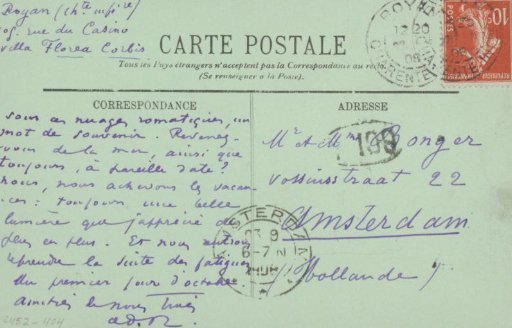 Royan (Chte infre)
rue du Casino
villa Florea Corbis
CARTE POSTALE
Tous les Pays étrangers n'acceptent pas la Correspondance au recto
(Se renseigner à la Poste).
CORRESPONDANCE
sous ces nuages romatiques, un
mot de souvenir. Revenez-
vous de la mer, ainsi que
toujours, à pareille date?
Nous, nous achevons les vacan-
ces: toujours une belle
lumière que j'apprécie de
plus en plus. Et nous allons
reprendre la suite des fatigues
du premier jour d'octobre
amitiés de nous tous
od. R.
ADRESSE
Mr et Mme Bonger
Vossiusstraat 22
Amsterdam
Hollande
ROYAN
12 20
09
CHARENTE
10
POSTES
199
AMSTERDAM
23 9
6-7 N
2452-1404